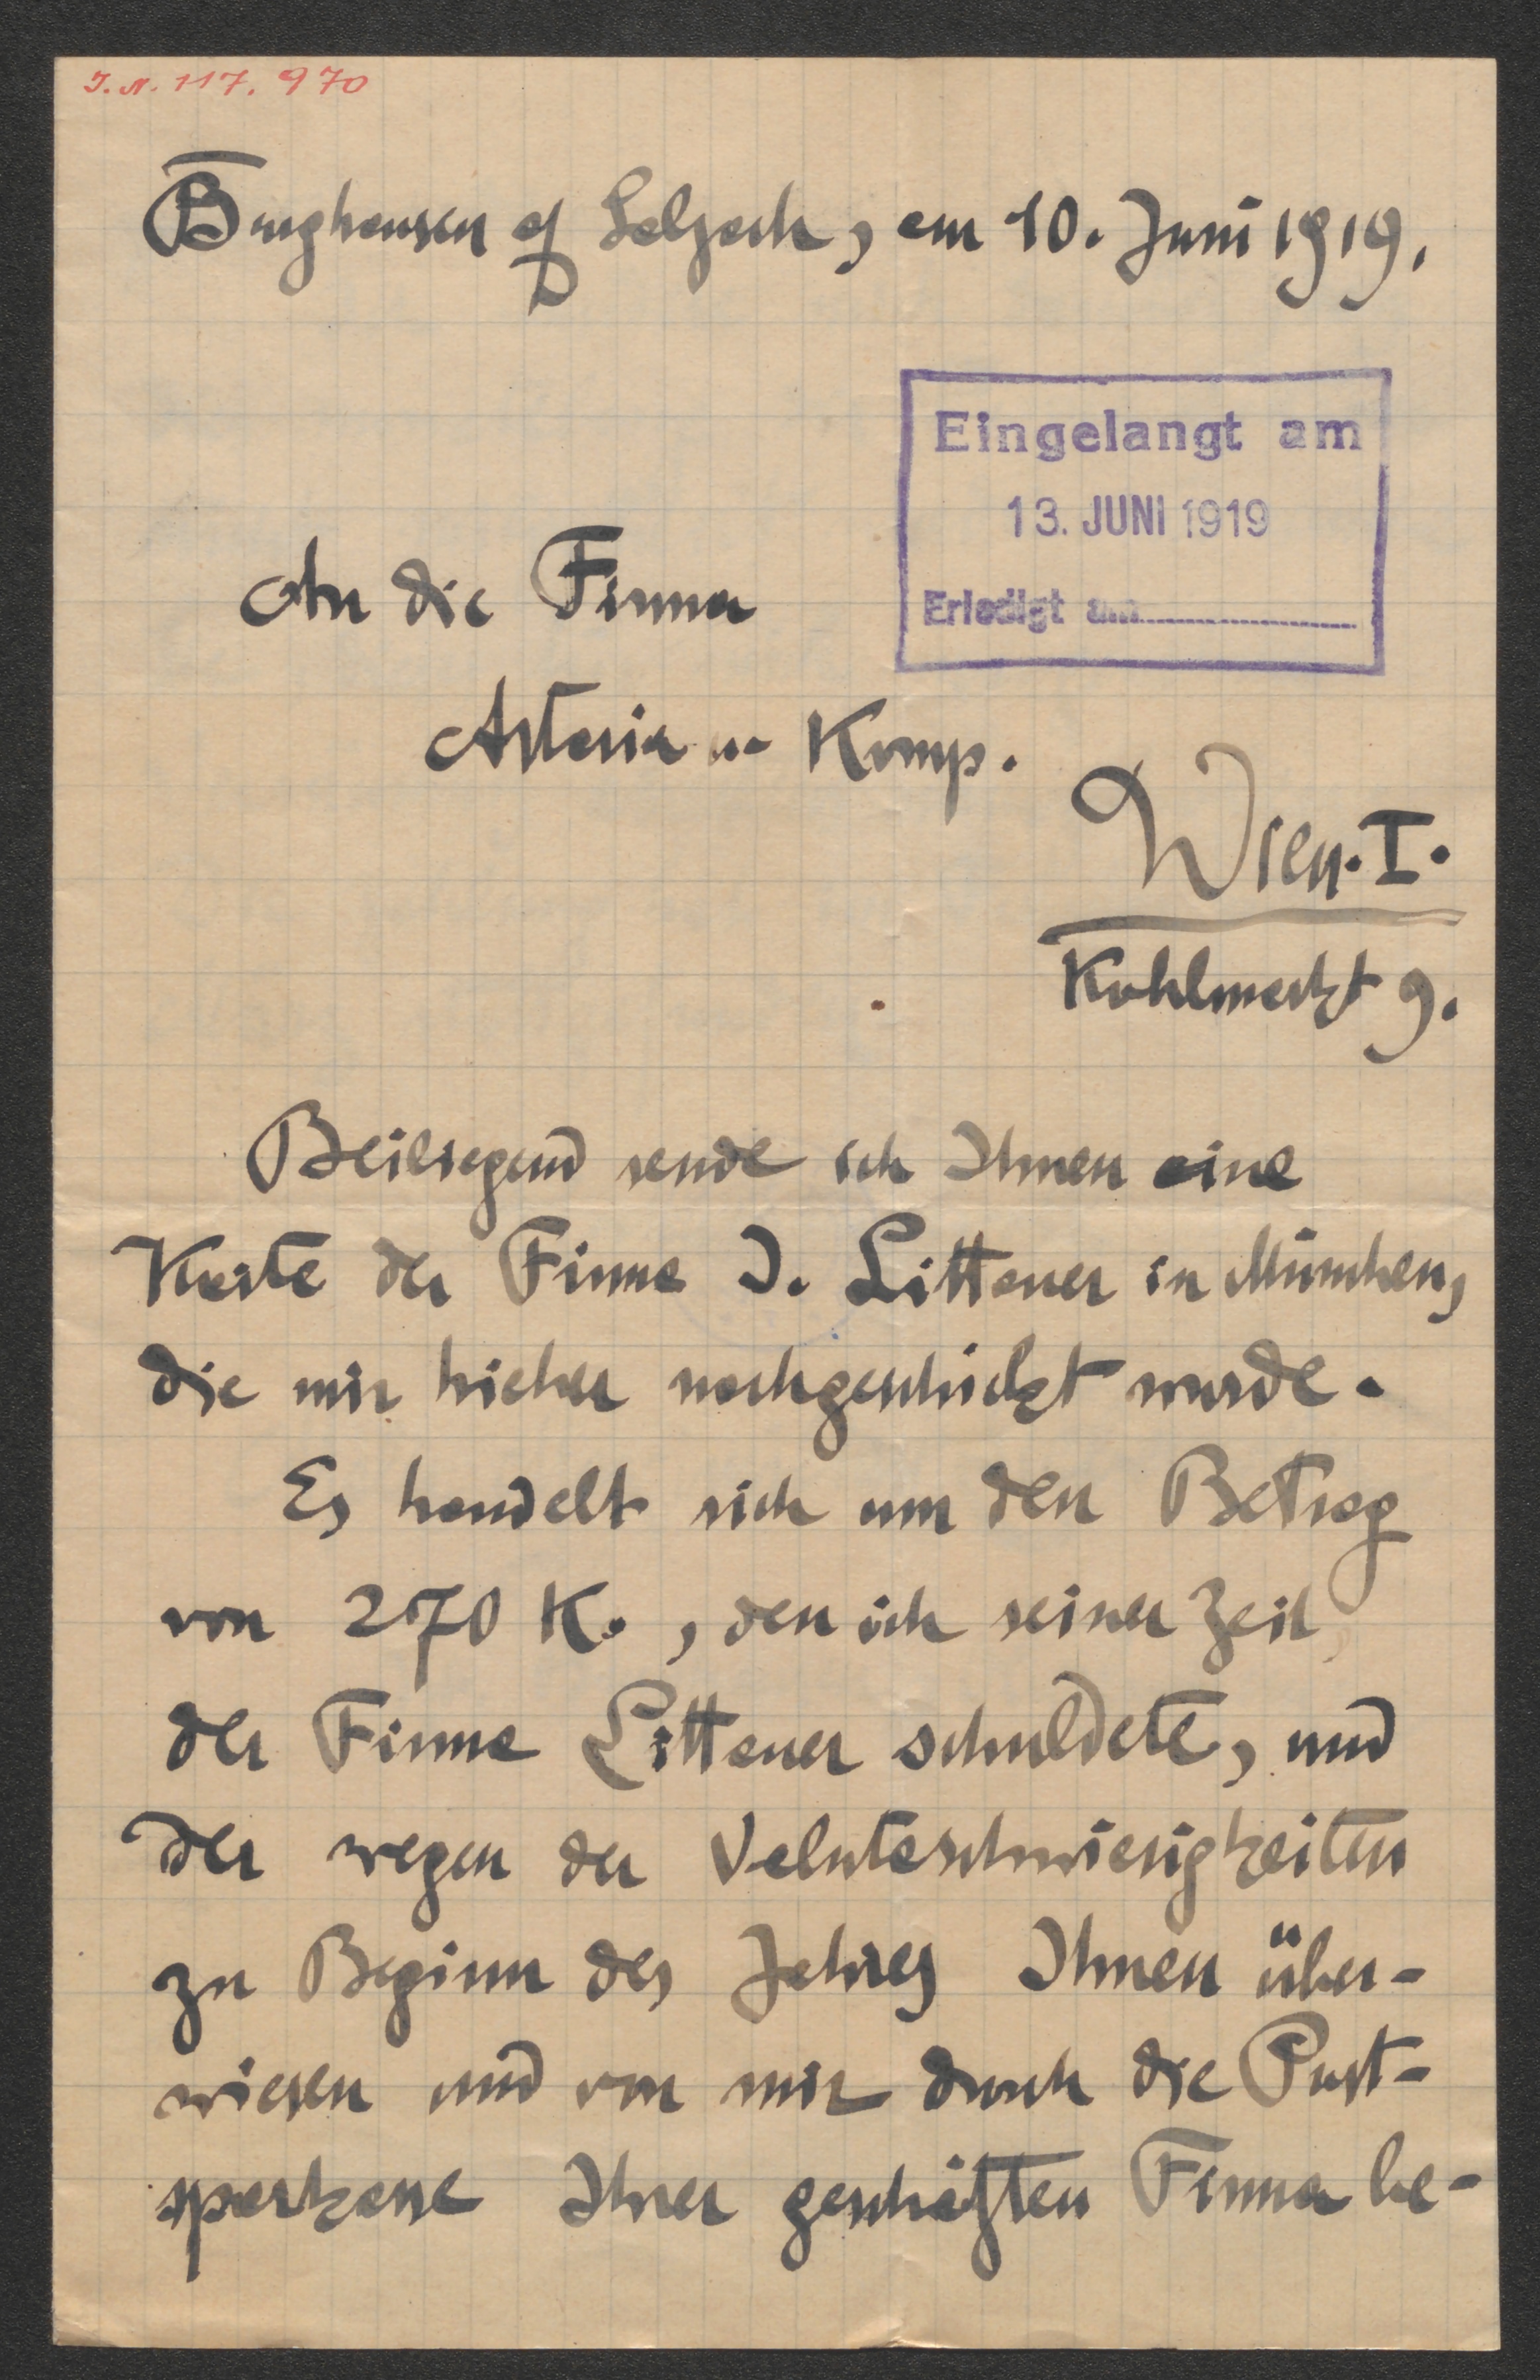 J. N. 117.970
Burghausen a/ Salzach, am 10. Juni 1919.
Eingelangt am
13. JUNI 1919
Erledigt am
An die Firma
Artaria u. Komp.
Wien. I.
Kohlmarkt 9.
Beiliegend sende ich Ihnen eine
Karte der Firma J. Littauer in München,
die mir hieher nachgeschickt wurde.
Es handelt sich um den Betrag
von 270 K., den ich seiner Zeit
der Firma Littauer schuldete, und
der wegen der Valutaschwierigkeiten
zu Beginn des Jahres Ihnen über-
wiesen und von mir durch die Post-
sparkasse Ihrer geschätzten Firma be-